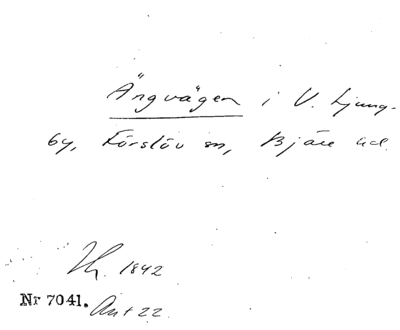 Ängvägen i V. Ljung-
by, Förslöv sn, Bjäre hd.
Lh. 1842
Nr 7041. Ant 22.